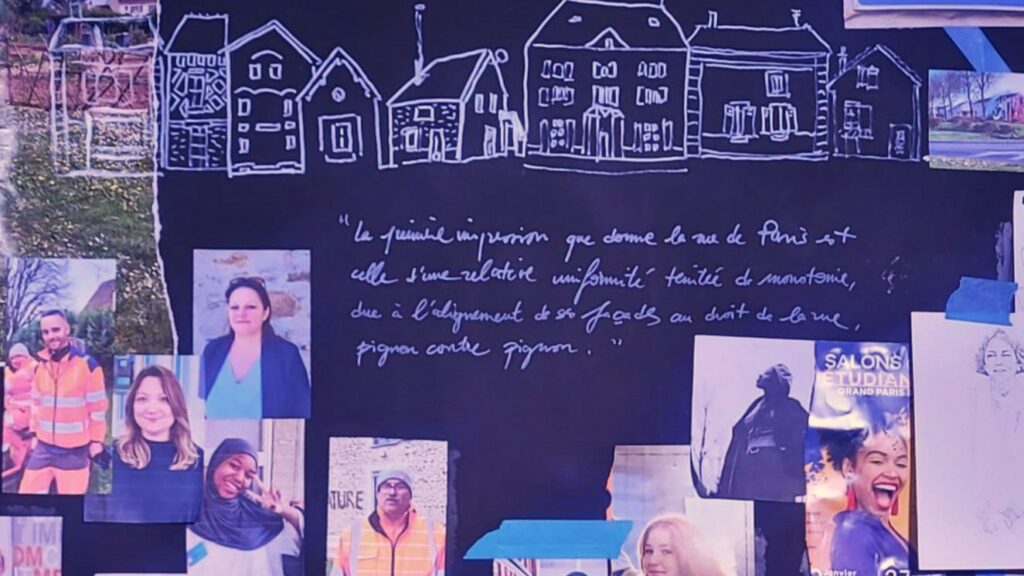 "La première impression que donne la rue de Paris est
celle d'une relative uniformité teintée de monotonie,
due à l'alignement de ses façades au droit de la rue,
pignon contre pignon."
SALONS
ETUDIAN
GRAND PARIS
TURE
Janvier
27